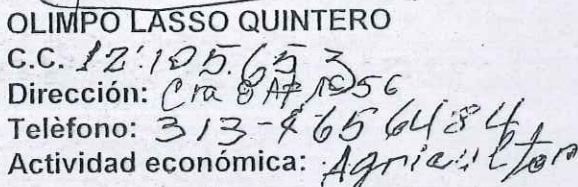 OLIMPO LASSO QUINTERO
C.C. 12'105.653
Dirección: Cra 8 AP 1056
Telèfono: 313-4656484
Actividad económica: Agricultor